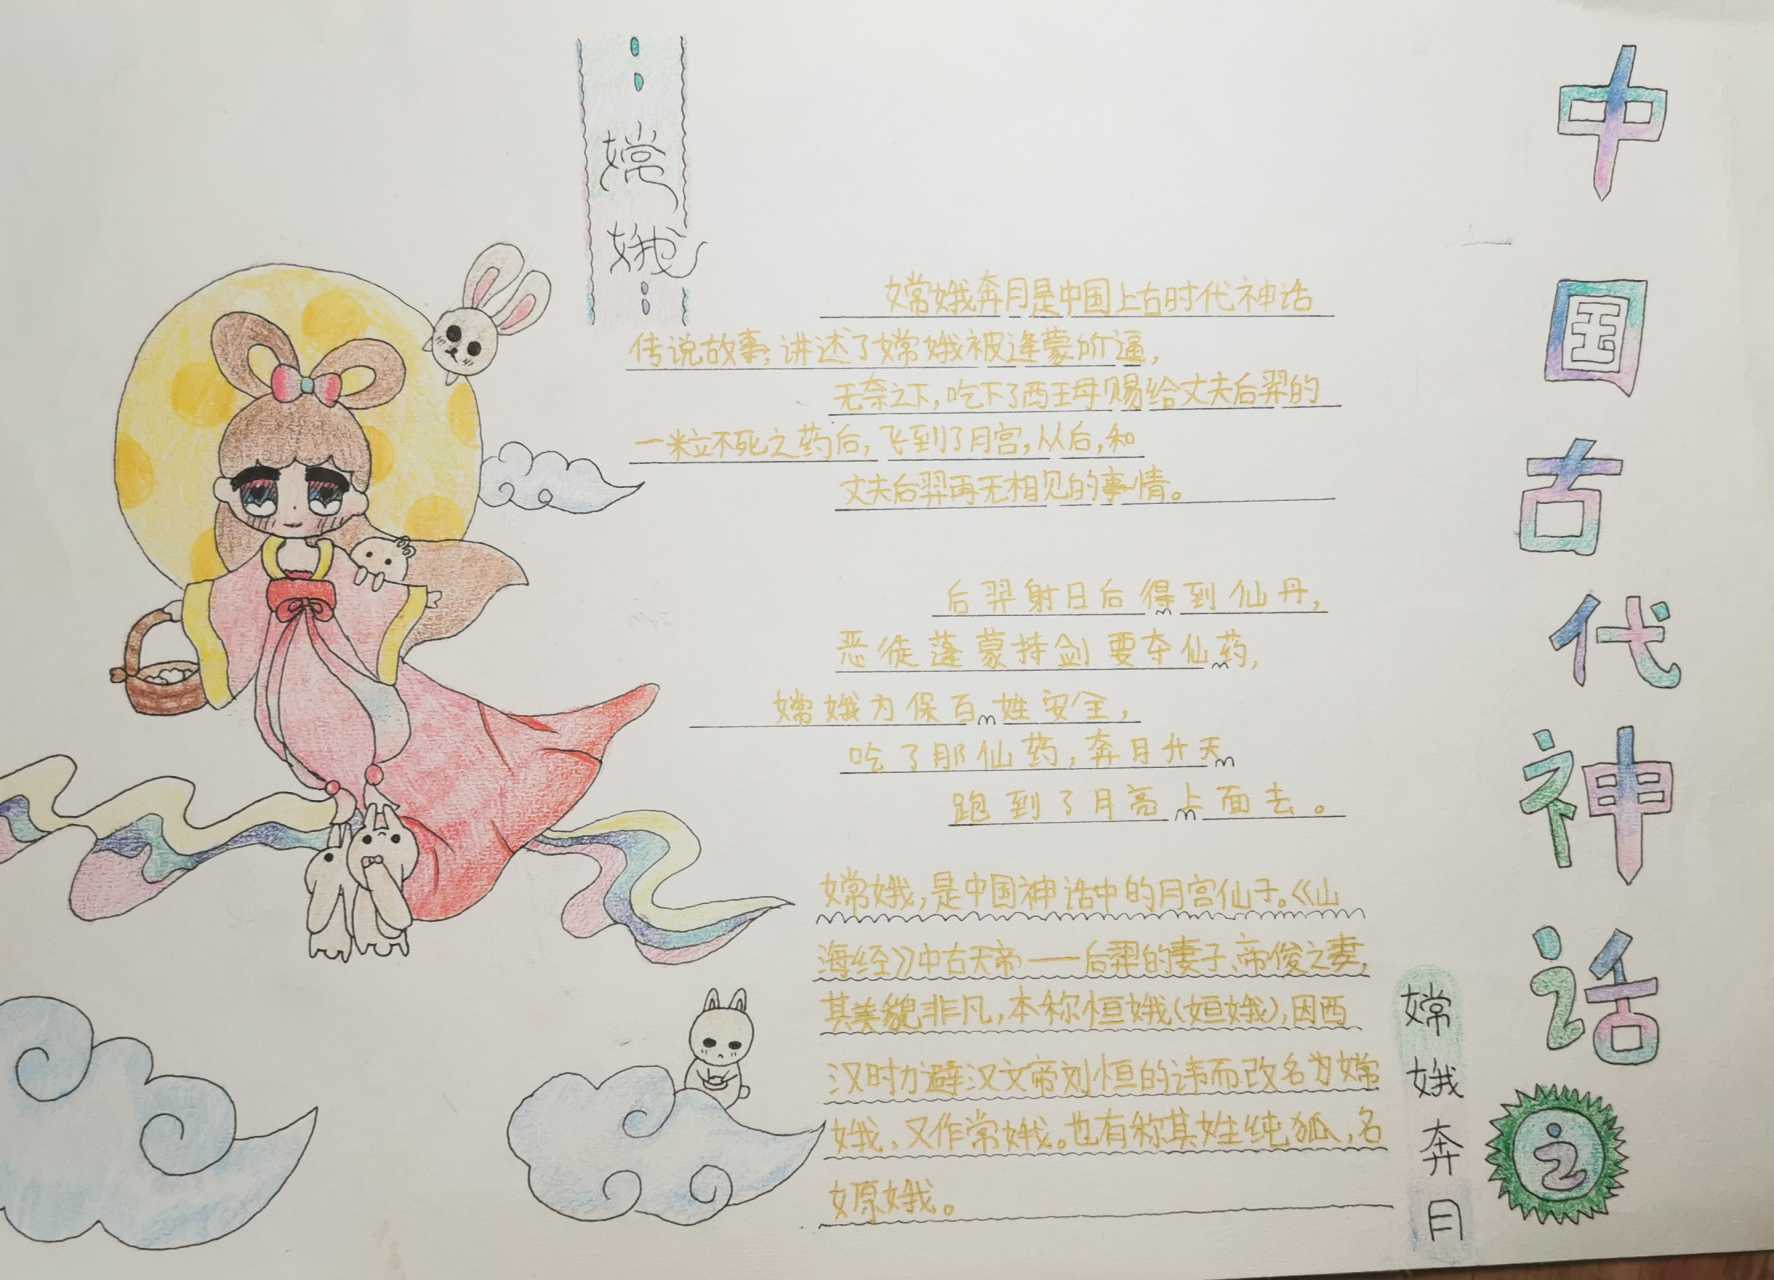 中国古代神话
之
嫦娥奔月
嫦娥
嫦娥奔月是中国上古时代神话
传说故事；讲述了嫦娥被逢蒙所逼，
无奈之下，吃下了西王母赐给丈夫后羿的
一粒不死之药后，飞到了月宫，从后，和
丈夫后羿再无相见的事情。
后羿射日后得到仙丹，
恶徒蓬蒙持剑要夺仙药，
嫦娥为保百姓安全，
吃了那仙药，奔月升天
跑到了月亮上面去。
嫦娥，是中国神话中的月宫仙子。《山
海经》中古天帝——后羿的妻子、帝俊之妻，
其美貌非凡，本称恒娥（姮娥），因西
汉时力避汉文帝刘恒的讳而改名为嫦
娥、又作常娥。也有称其姓纯狐，名
嫄娥。